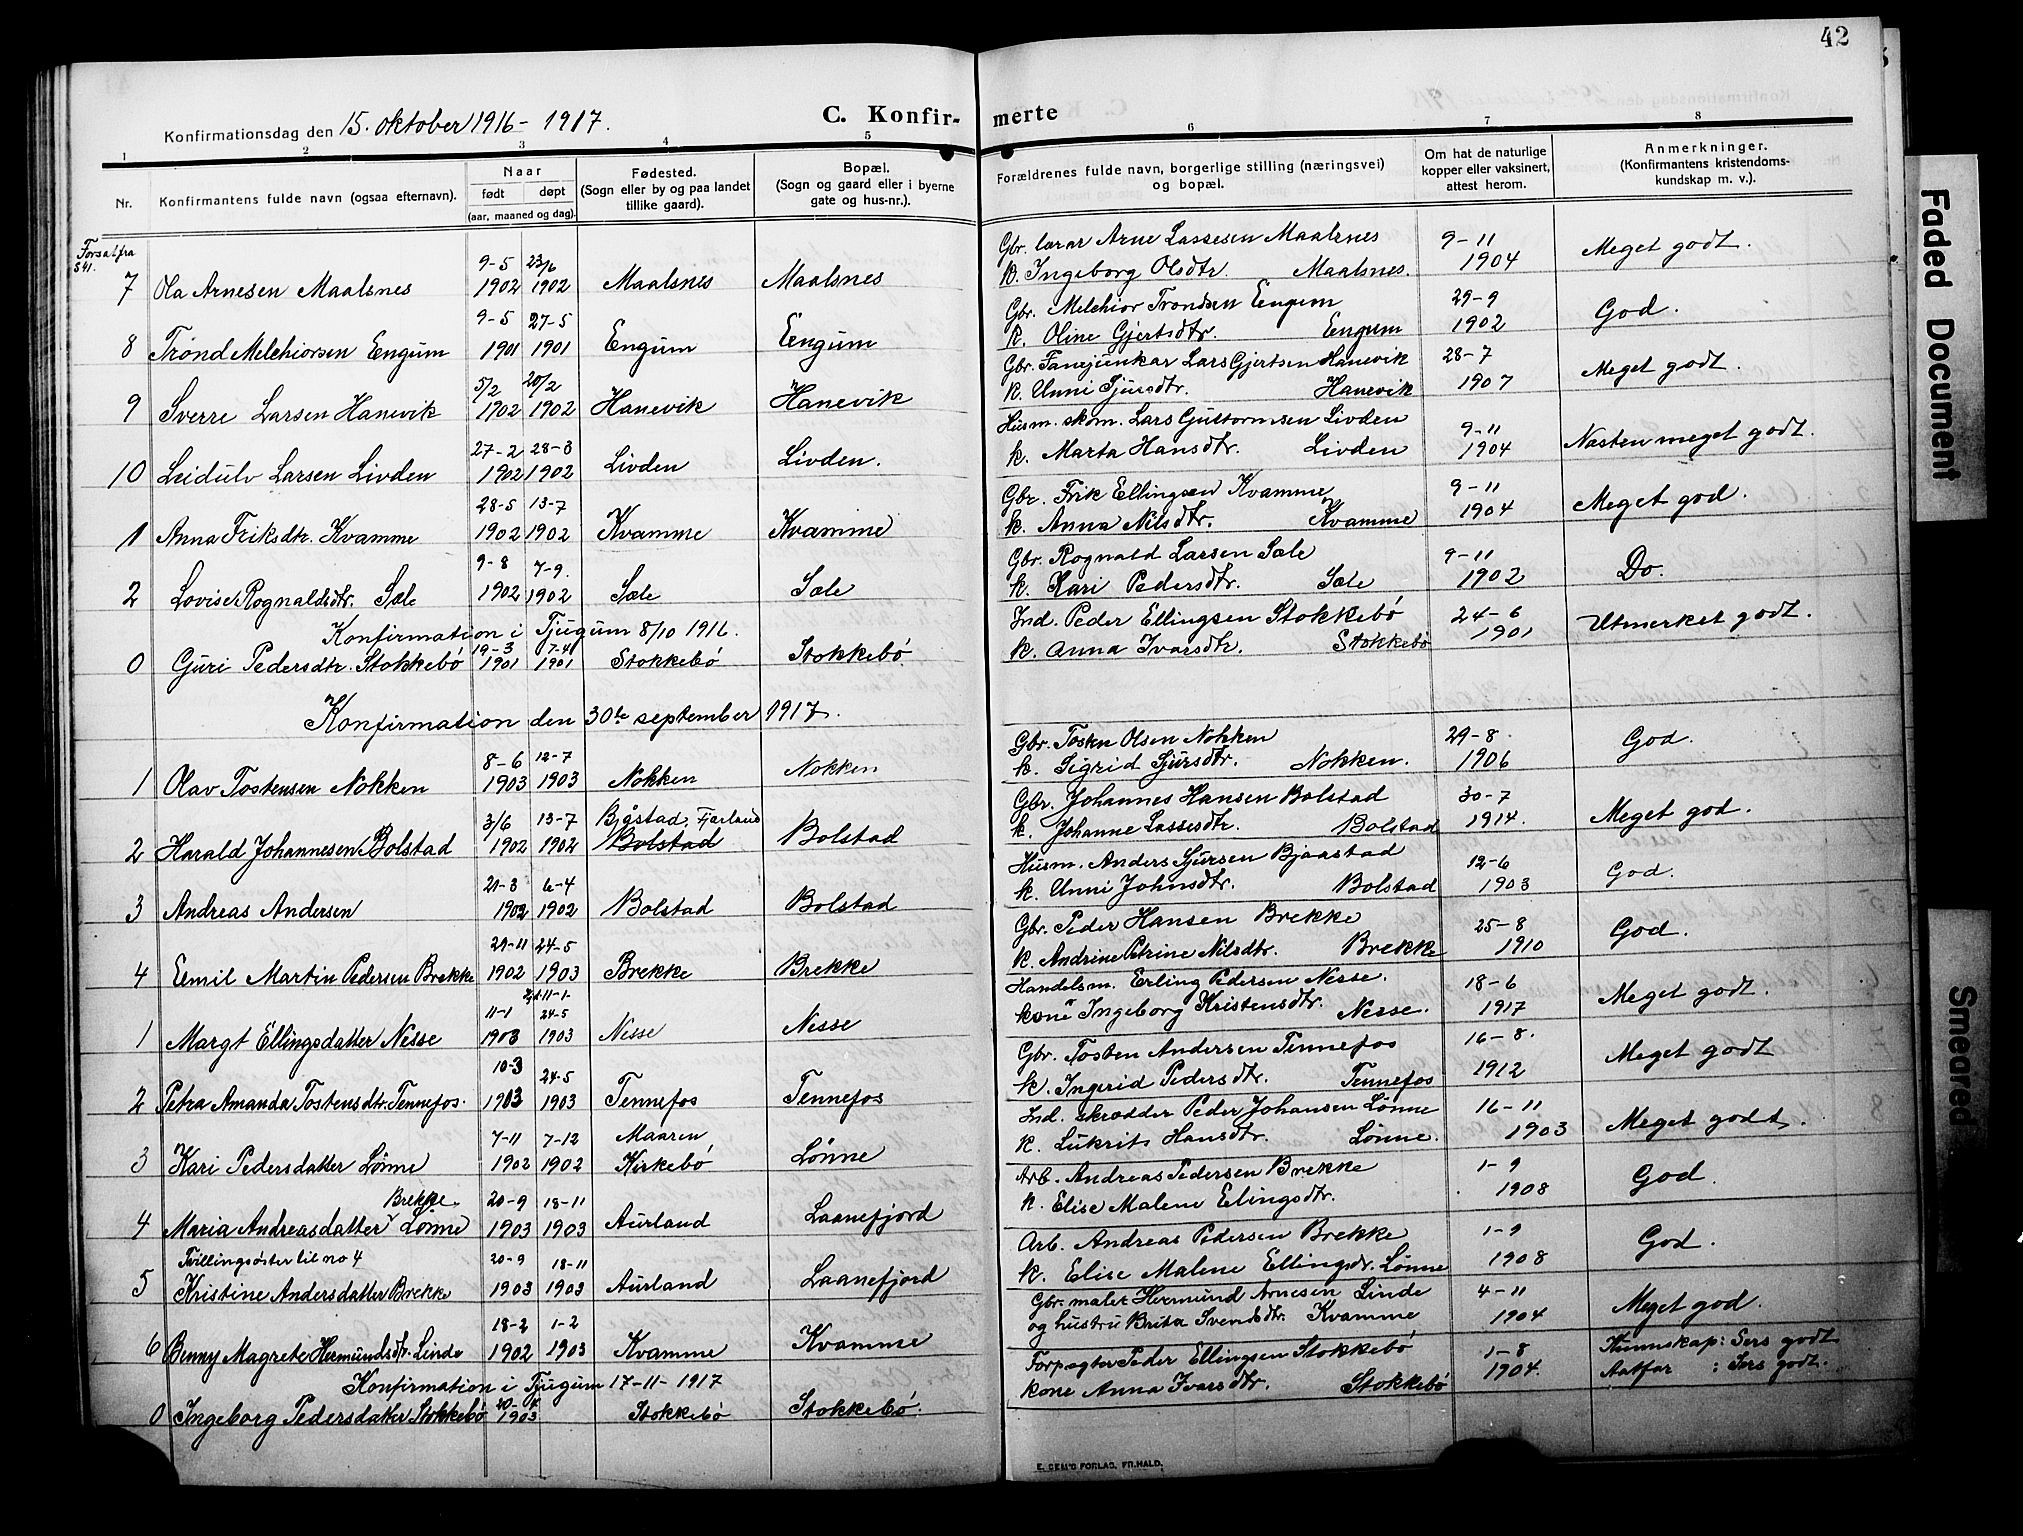 42
Konfirmationsdag den 15. oktober 1916 - 1917.
C. Konfir- merte
1 2 3 4 5 6 7 8
Nr.
Konfirmantens fulde navn (ogsaa efternavn).
Naar
født døpt
(aar, maaned og dag).
Fødested.
(Sogn eller by og paa landet
tillike gaard).
Bopæl.
(Sogn og gaard eller i byerne
gate og hus-nr.).
Forældrenes fulde navn, borgerlige stilling (næringsvei)
og bopæl.
Om hat de naturlige
kopper eller vaksinert,
attest herom.
Anmerkninger.
(Konfirmantens kristendoms-
kundskap m. v.).
Forsat fra
S 41.
9-5 23/6 Gbr. lærar Arne Lassesen Maalsnes 9-11
7 Ola Arnesen Maalsnes 1902 1902 Maalsnes Maalsnes k. Ingeborg Olsdtr. Maalsnes. 1904 Meget godt.
9-5 27-5 Gbr. Melchior Trondsen Engum 29-9
8 Trønd Melchiorsen Engum 1901 1901 Engum Engum k. Oline Gjertsdtr. Engum 1902 God.
5/2 20/2 Gbr. Fanejunkar Lars Gjertsen Hanevik 28-7
9 Sverre Larsen Hanevik 1902 1902 Hanevik Hanevik k. Unni Sjursdtr. Hanevik 1907 Meget godt.
27-2 28-3 Husm. skom. Lars Guttormsen Livden 9-11
10 Leidulv Larsen Livden 1902 1902 Livden Livden. k. Marta Hansdtr. Livden 1904 Næsten meget godt.
28-5 13-7 Gbr. Frik Ellingsen Kvamme 9-11
1 Anna Friksdtr. Kvamme 1902 1902 Kvamme Kvamme k. Anna Nilsdtr. Kvamme 1904 Meget god.
9-8 7-9. Gbr. Rognald Larsen Sæle 9-11
2 Lovise Rognaldsdtr. Sæle 1902 1902 Sæle Sæle k. Kari Pedersdtr. Sæle 1902 Do.
Konfirmation i Tjugum 8/10 1916.
19-3 7-4 Ind. Peder Ellingsen Stokkebø 24-6
0 Guri Pedersdtr. Stokkebø 1901 1901 Stokkebø Stokkebø k. Anna Ivarsdtr. Stokkebø 1901 Utmerket godt.
Konfirmation den 30te september 1917.
8-6 12-7 Gbr. Tosten Olsen Nokken 29-8.
1 Olav Tostensen Nokken 1903 1903 Nokken Nokken k. Sigrid Sjursdtr. Nokken. 1906 God.
3/6 13-7 Bjåstad, Fjærland Gbr. Johannes Hansen Bolstad 30-7
2 Harald Johannesen Bolstad 1902 1902 Bolstad Bolstad k. Johanne Lassesdtr. Bolstad 1914. Meget god.
21-3 6-4 Husm. Anders Sjursen Bjaastad 12-6
3 Andreas Andersen 1902 1902 Bolstad Bolstad k. Unni Johnsdtr. Bolstad 1903 God.
29-11 24-5 Gbr. Peder Hansen Brekke 25-8
4 Emil Martin Pedersen Brekke 1902 1903 Brekke Brekke k. Andrine Petrine Nilsdtr. Brekke 1910 God.
11-1 11-1- 24-5 Handelsm. Erling Pedersen Nesse. 18-6
1 Margt Ellingsdatter Nesse 1903 1903 Nesse Nesse kone Ingeborg Kristensdtr. Nesse. 1917 Meget godt.
10-3 24-5 Gbr. Tosten Andersen Tennefos 16-8.
2 Petra Amanda Tostensdtr. Tennefos. 1903 1903 Tennefos Tennefos k. Ingerid Pedersdtr. Tennefos 1912 Meget godt
7-11 7-12 Maaren Ind. skrædder Peder Johansen Lønne 16-11
3 Kari Pedersdatter Lønne 1902 1902 Kirkebø Lønne k. Lukrits Hansdtr. Lønne. 1903 Meget godt.
Brekke 20-9 18-11 Arb. Andreas Pedersen Brekke 1-9
4 Maria Andreasdatter Lønne 1903 1903 Aurland Laanefjord k. Elise Malene Elingsdtr. 1908 God.
Tvillingsøster til no 4 20-9 18-11 Arb. Andreas Pedersen Brekke 1-9
5 Kristine Andersdatter Brekke 1903 1903 Aurland Laanefjord k. Elise Malene Ellingsdr. Lønne 1908 God.
18-2 1-2 Gbr. maler Hermund Arnesen Linde 4-11
6 Benny Magrete Hermundsdtr. Linde 1902 1903 Kvamme Kvamme og hustru Brita Svendsdtr. Kvamme 1904 Meget god.
Konfirmation i Tjugum 17-11-1917
20-4 Forpagter Peder Ellingsen Stokkebø 1-8 Kunnskap: Sers godt
0 Ingeborg Pedersdatter Stokkebø 1903 Stokkebø Stokkebø. kone Anna Ivarsdtr. Stokkebø 1904. Aatfar : Sers godt.
E. SEM'S FORLAG, FR.HALD.
Faded Document
Smeared